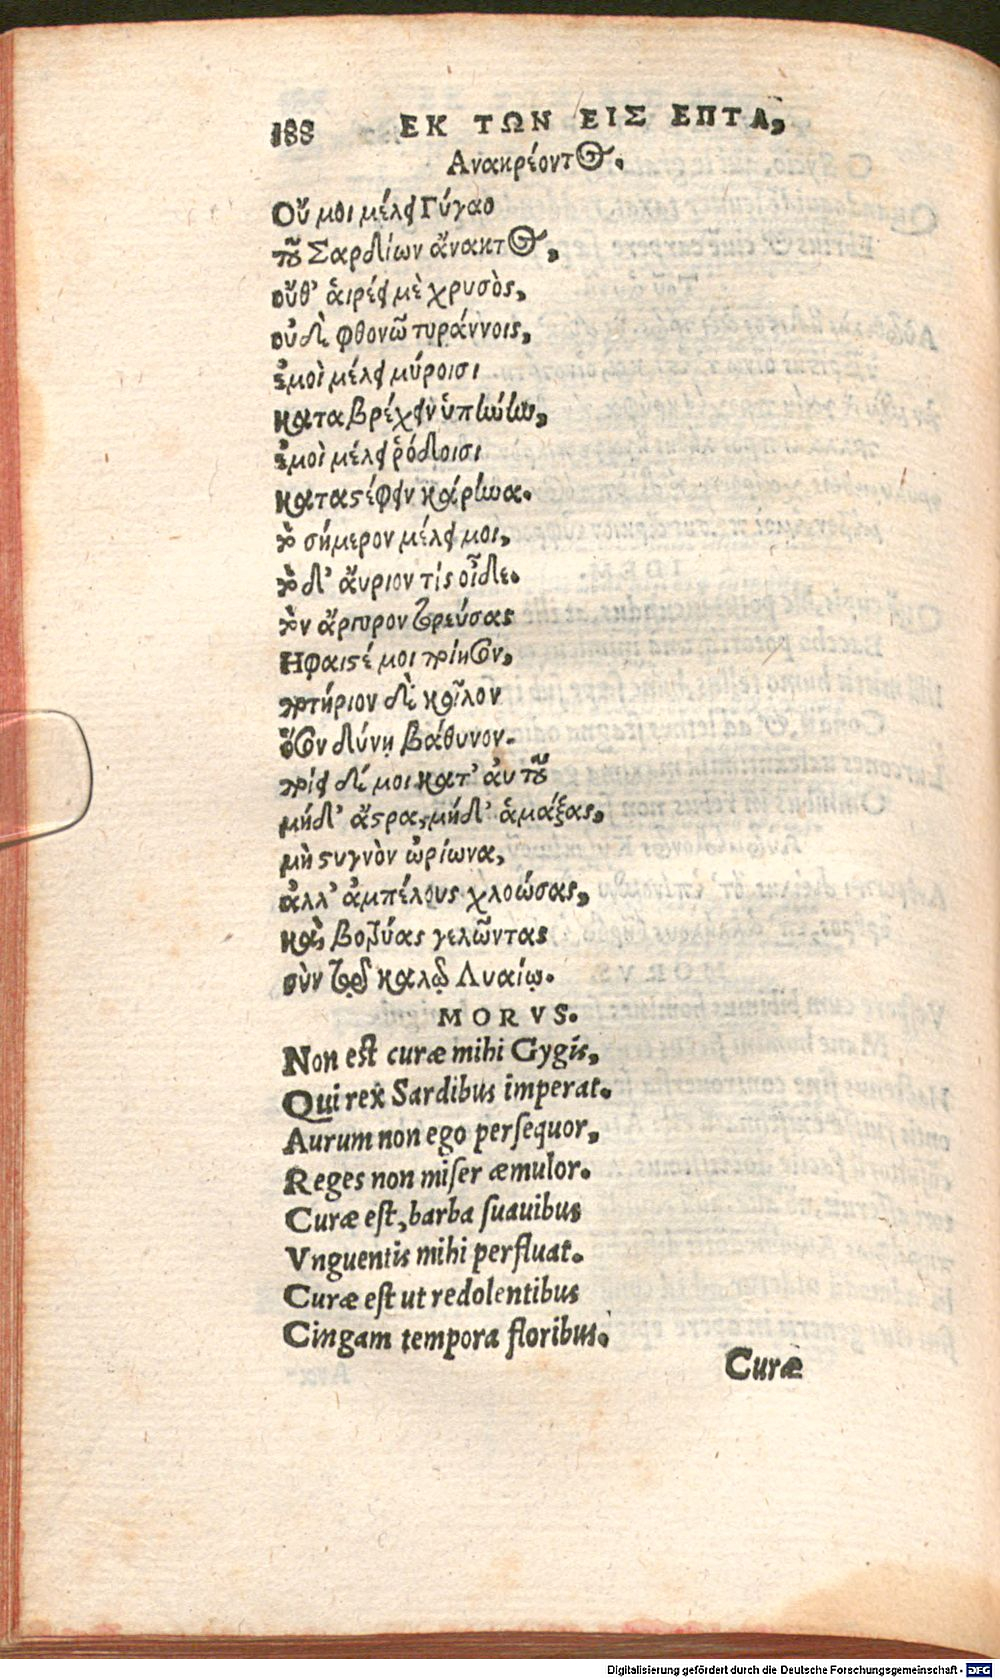 188 ΕΚ ΤΩΝ ΕΙΣ ΕΠΤΑ,
Ανακρέοντος.
Οὔ μοι μέλει Γύγαο
τοῦ Σαρδίων ἄνακτος,
οὔθ' ἁιρέει μὲ χρυσὸς,
οὐδὲ φθονῶ τυράννοις,
ἐμοὶ μέλει μύροισι
καταβρέχειν ὑπήνην,
ἐμοὶ μέλει ῥόδοισι
καταστέφειν κάρηνα.
τὸ σήμερον μέλει μοι,
τὸ δ' ἄυριον τίς οἶδε.
τὸν ἄργυρον τορεύσας
Ηφαιστέ μοι ποίησον,
ποτήριον δὲ κοῖλον
ὅσον δύνῃ βάθυνον.
ποίει δέ μοι κατ' ἀυτοῦ
μήδ' ἄστρα, μήδ' ἁμάξας,
μὴ στυγνὸν ὠρίωνα,
ἀλλ' ἀμπέλους χλοώσας,
καὶ βοτρύας γελῶντας
σὺν τῷ καλῷ Λυαίῳ.
MORVS.
Non est curæ mihi Gygis,
Qui rex Sardibus imperat.
Aurum non ego persequor,
Reges non miser æmulor.
Curæ est, barba suauibus
Vnguentis mihi perfluat.
Curæ est ut redolentibus
Cingam tempora floribus.
Curæ
Digitalisierung gefördert durch die Deutsche Forschungsgemeinschaft - DFG